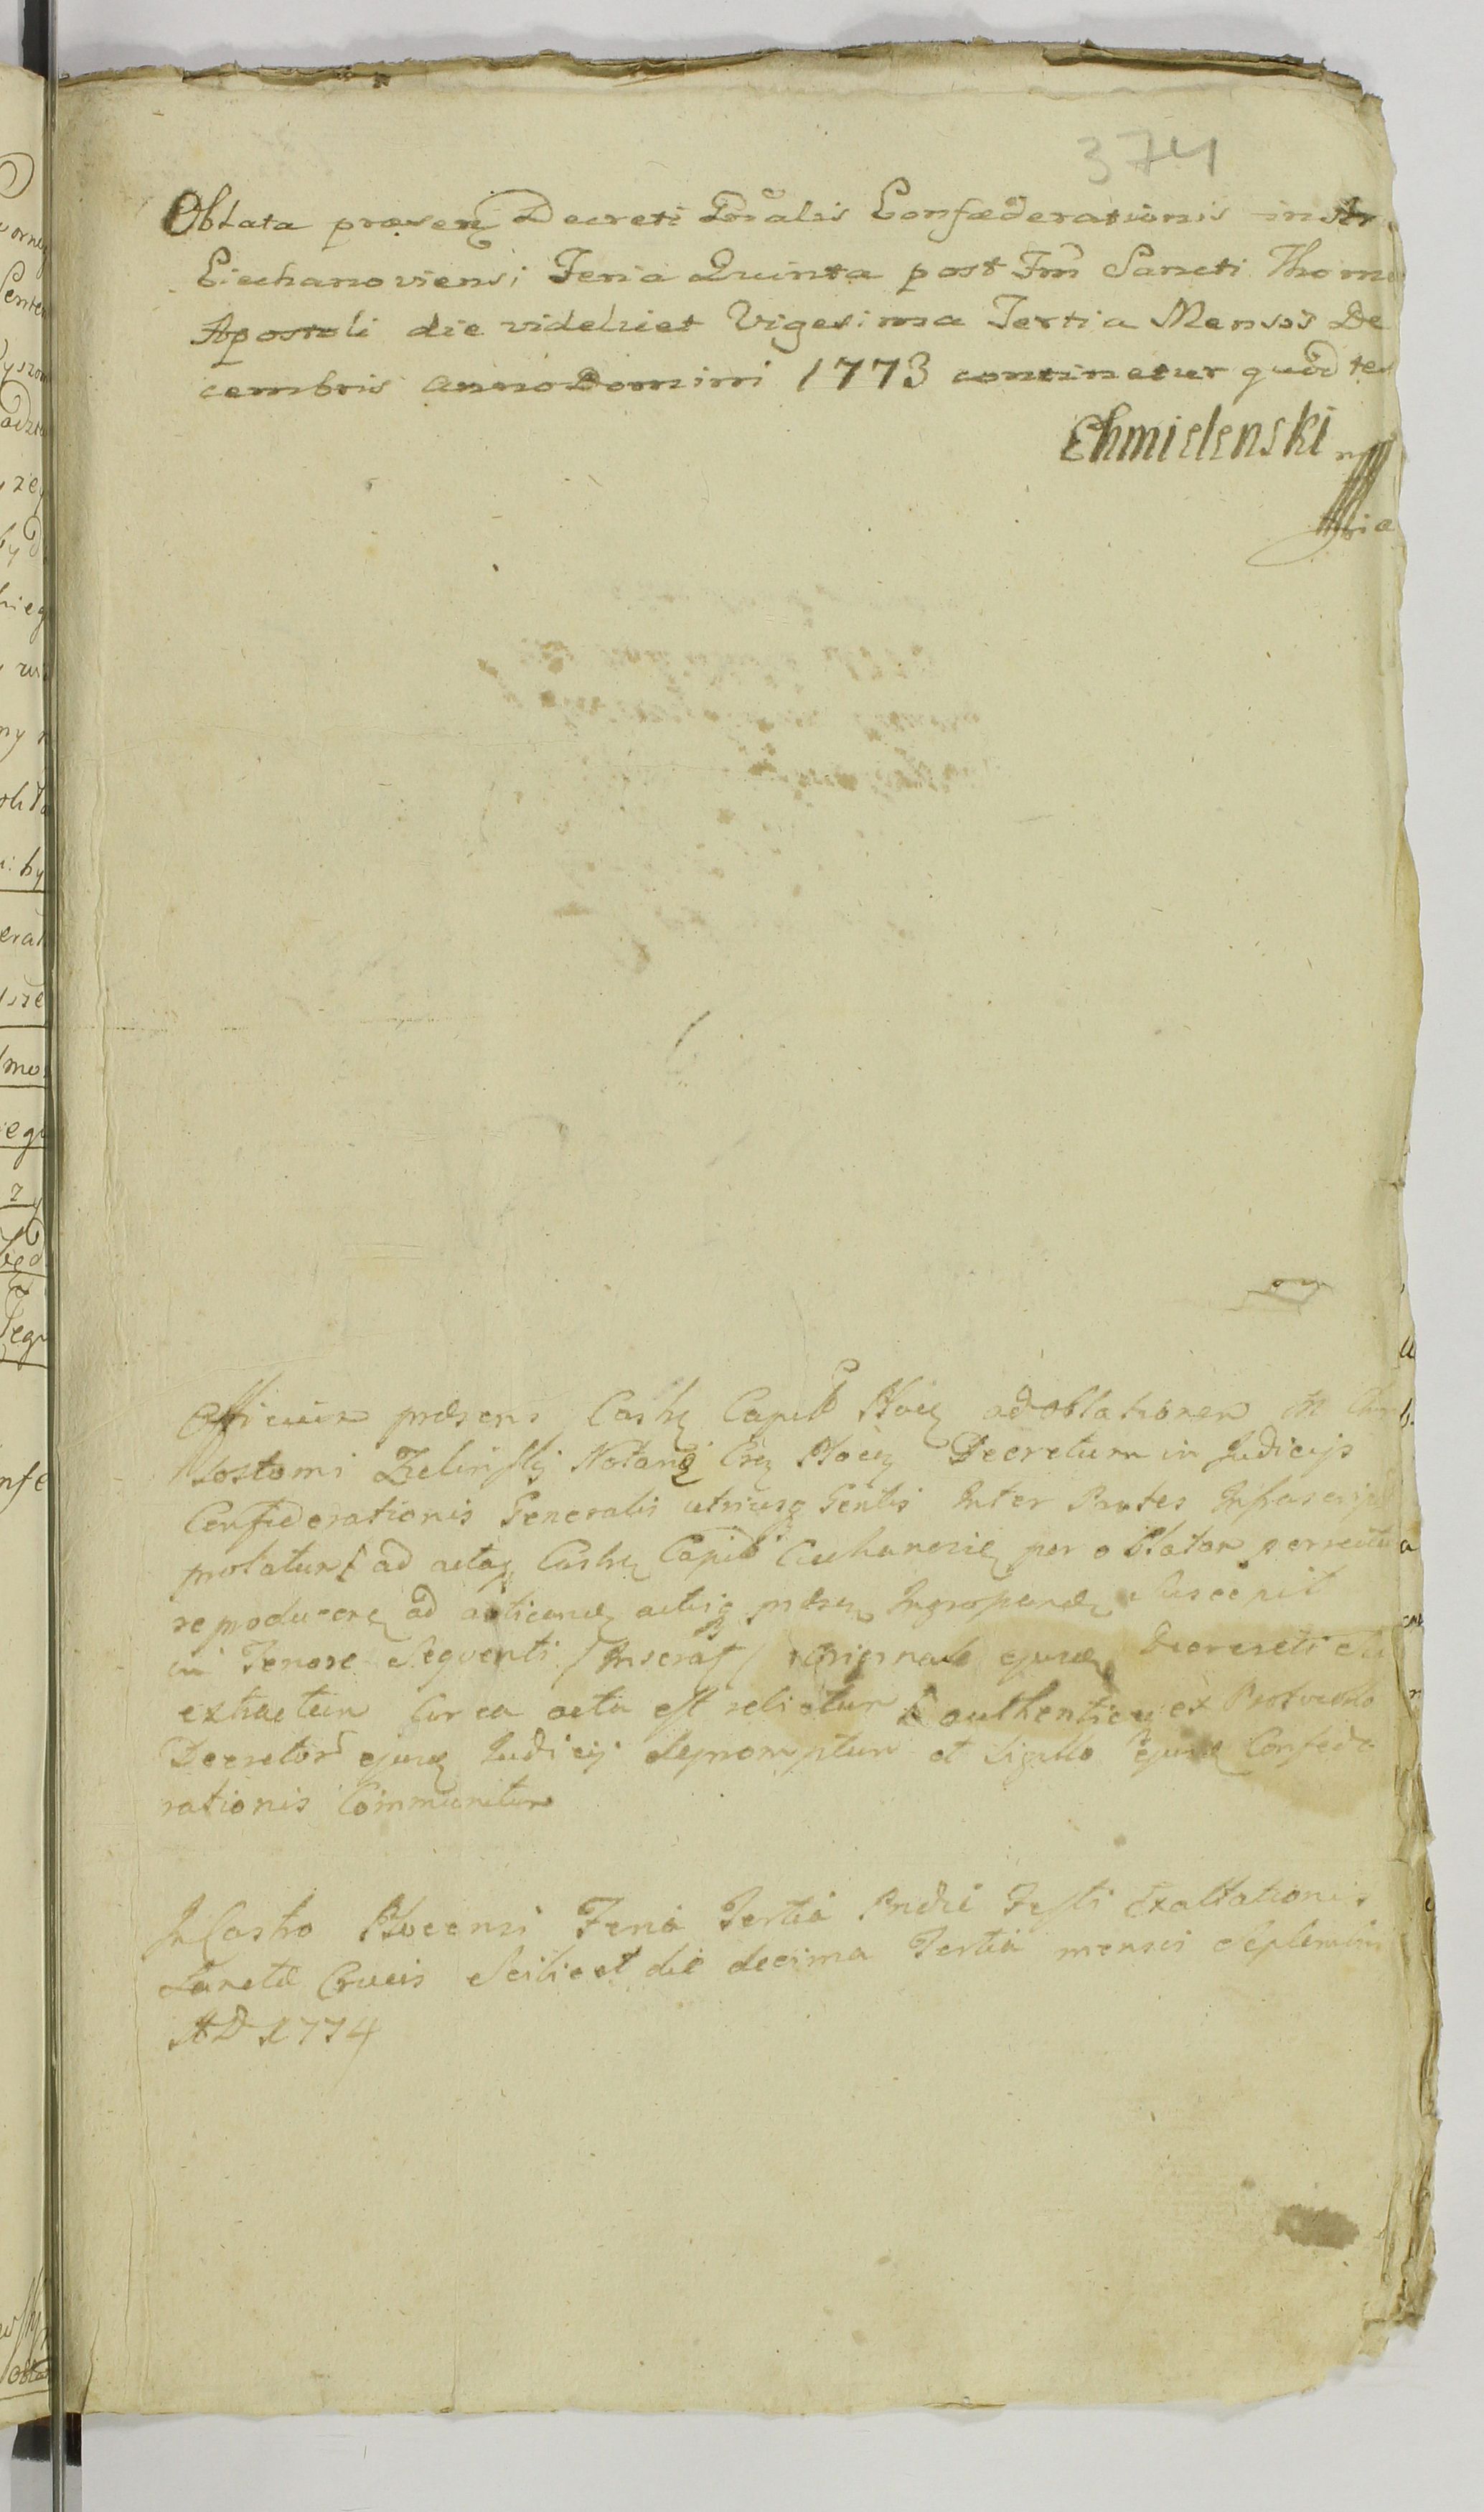 374
Oblata præsenꝫ Decreti Gñalis Confæderationis in str
Ciechanoviensi Feria Quinta post Fm̃ Sancti Thomæ
Apostoli die videlicet Vigesima Tertia Mensis De
cembris anno Domini 1773 continetur quod tes
Chmielenski
Officium præsens Castrꝫ Capitł Płocꝫ ad oblationem M Chry
sostomi Zielinskij Notarij Płocꝫ Decretum in Judicijs
Confederationis Generalis utriusq Gentis Inter Partes Infrascript
prolatum ad actaq Castrꝫ Capitł Ciechanoviꝫ per oblatam porrectum
reproducenꝫ ad acticandꝫ actisq præsenꝫ Ingrossandꝫ Suscepit
in Tenore Sequenti /Inserat/ Originale ejusdꝫ Decreti
extractum Circa acta est relictum authenticum ex Protocollo
Decretor ejusdꝫ Judicij depromptum et Sigillo ejusdꝫ Confede
rationis Communitum
In Castro Płocensi Feria Tertia Pridie Festi Exaltationis
Sanctæ Crucis Scilicet die decima Tertia mensis Septembris
AD 1774